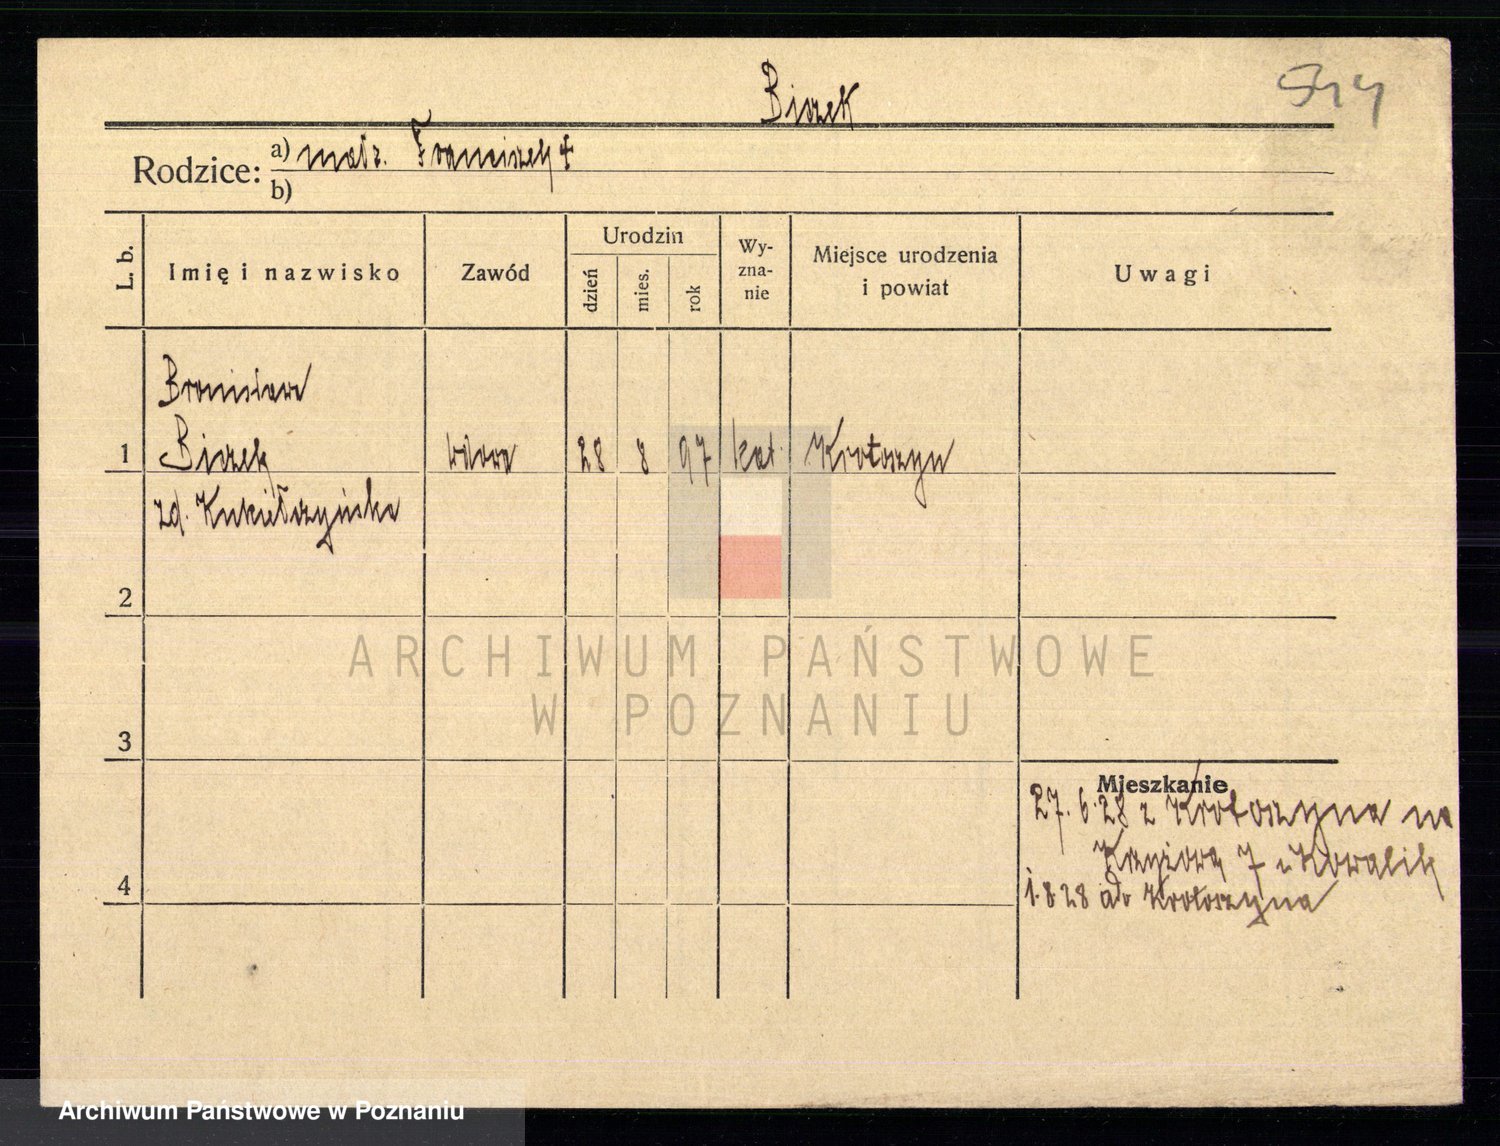 Biozek
544
Rodzice: a) małż. Franciszek +
b)
L. b.
Imię i nazwisko
Zawód
Urodzin
dzień
mies.
rok
Wy-
zna-
nie
Miejsce urodzenia
i powiat
Uwagi
Bronisława
1 Biozek wdowa 28 8 97 kat. Krotoszyn
zd. Kukiełczyńska
2
ARCHIWUM PAŃSTWOWE
W POZNANIU
3
Mieszkanie
27.6.28 z Krotoszyna na
Krzyżową 7 u Kowalik
4
1.8 28 do Krotoszyna
Archiwum Państwowe w Poznaniu